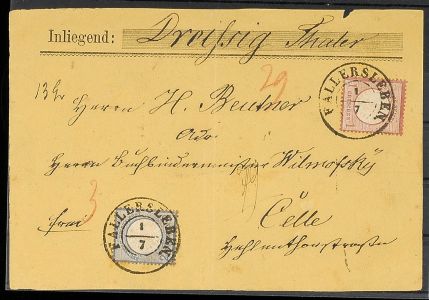 Inliegend: Dreissig Thaler
29
FALLERSLEBEN
1
7
13 Gr
Herrn H. Beutner
Adr.
Herrn Buchbindermeister Wilmofsky
3
frei
Celle
FALLERSLEBEN
1
7